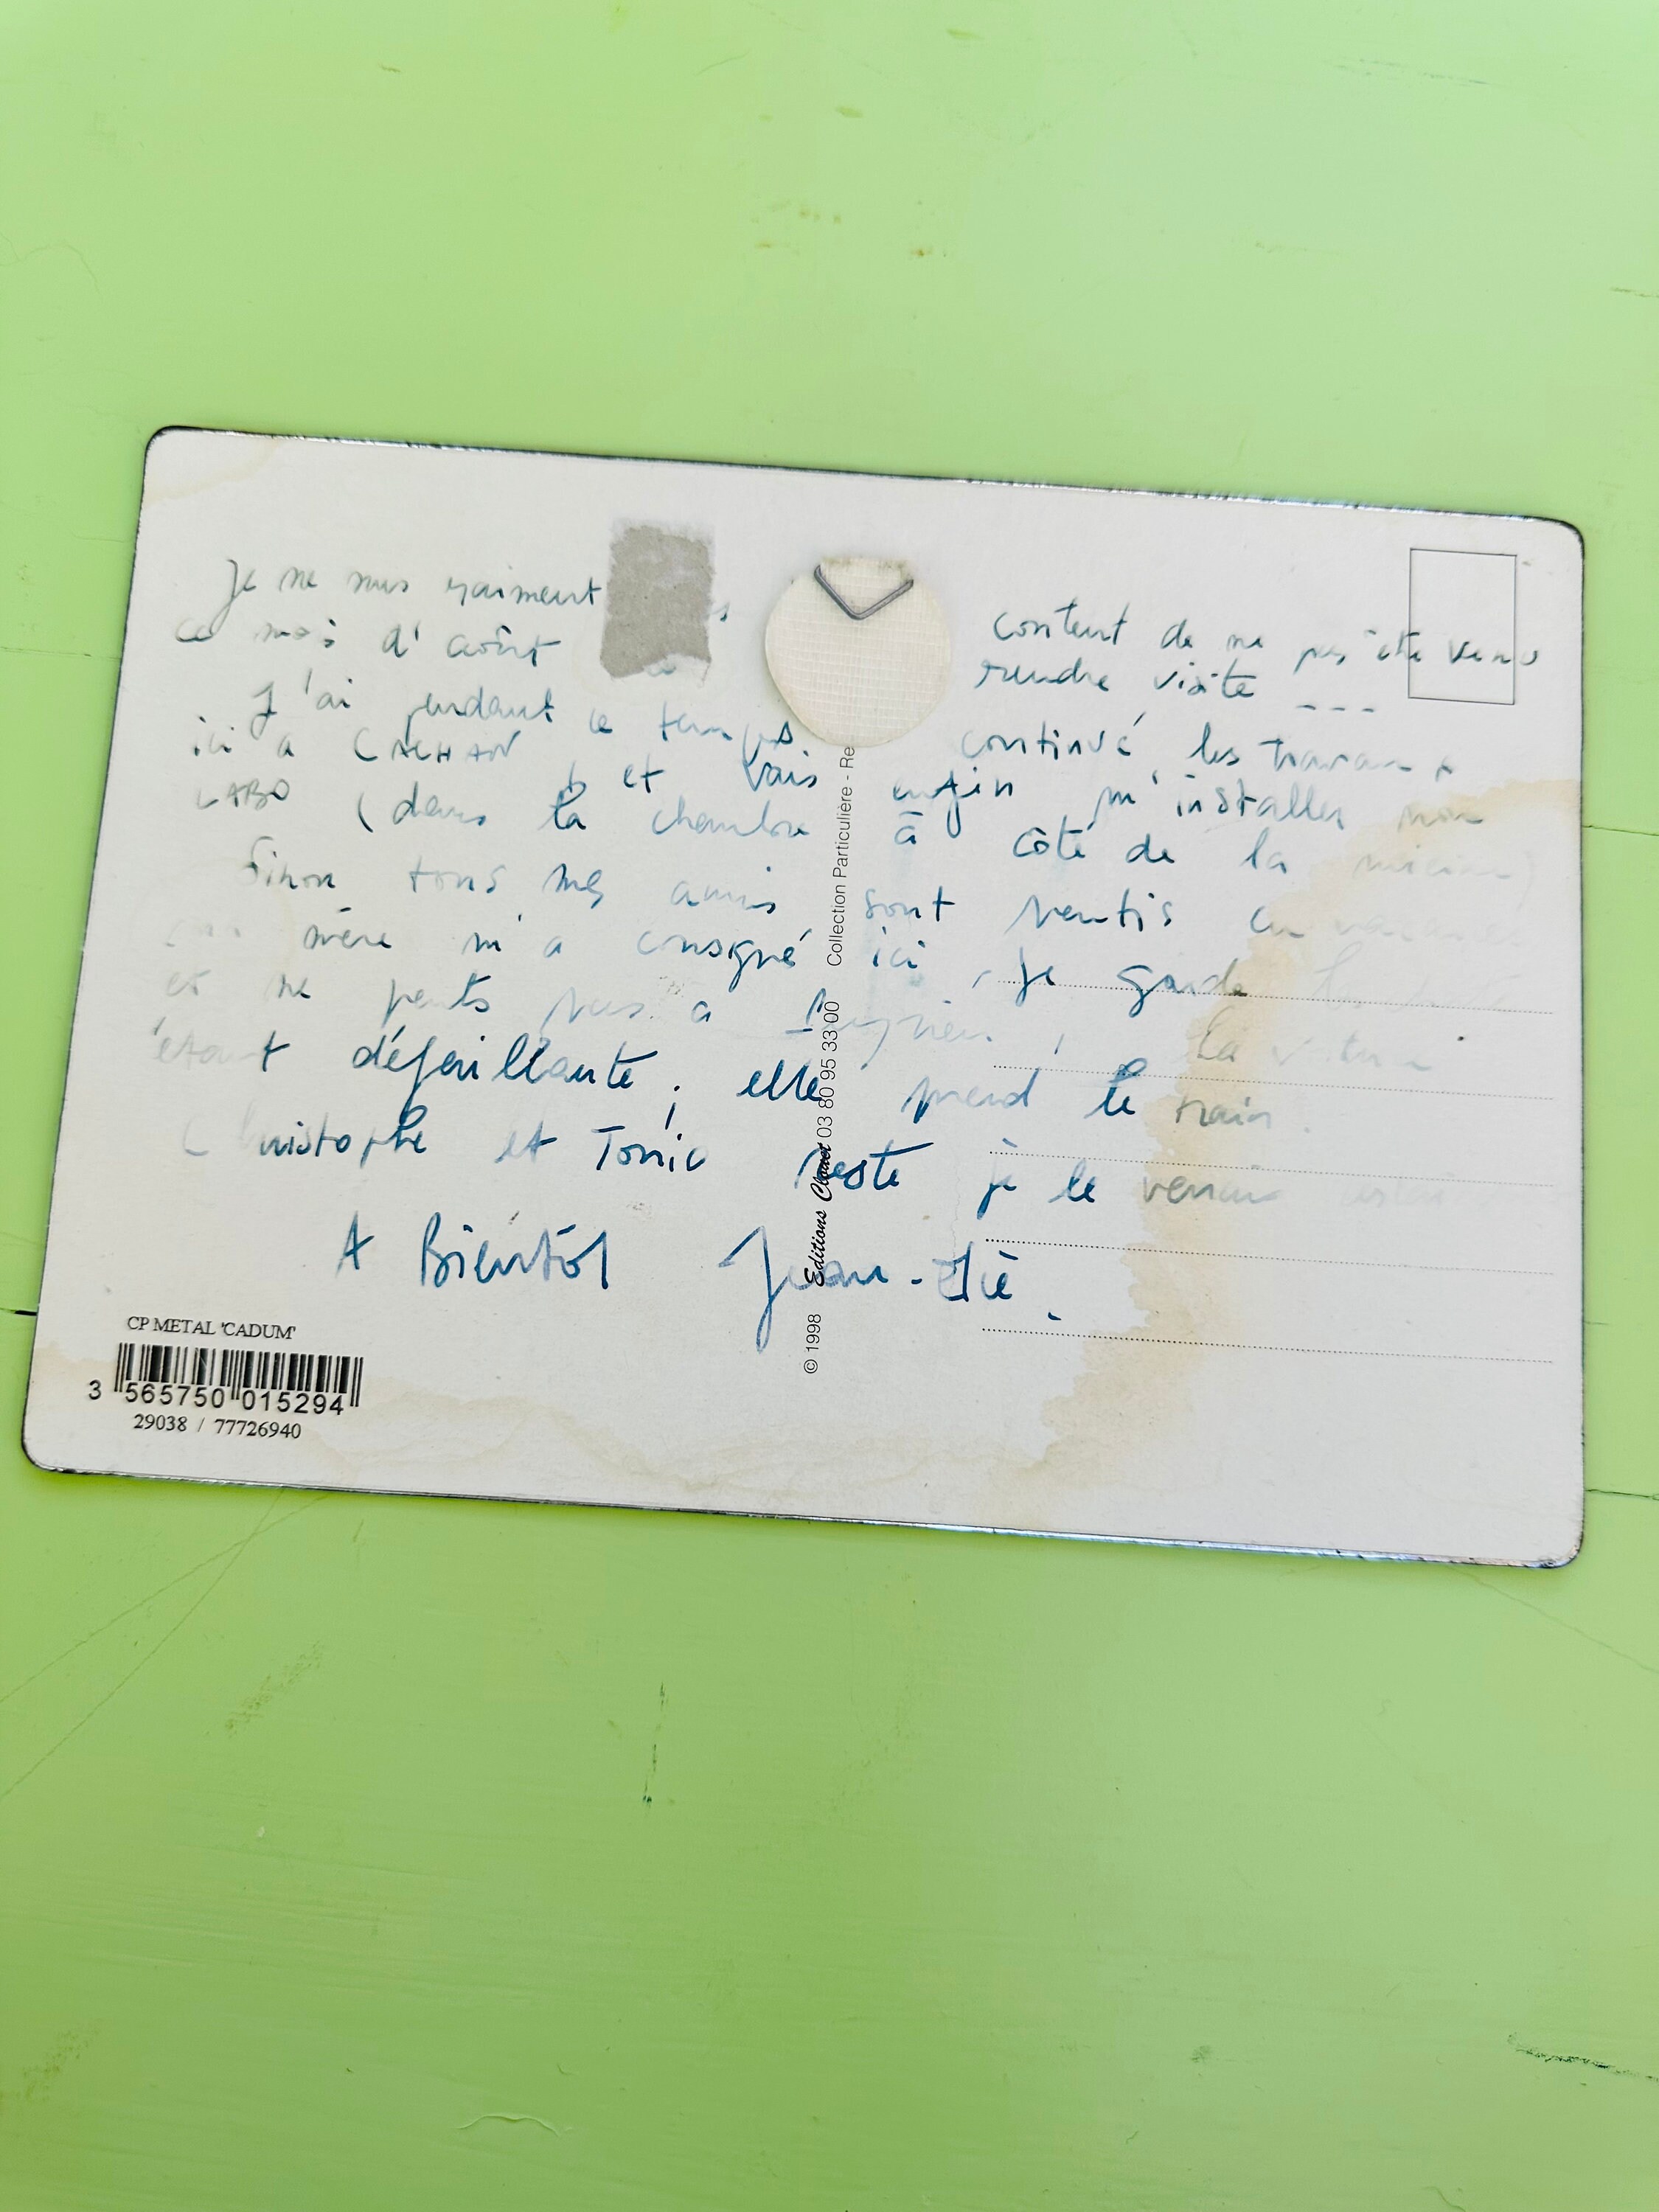 Je ne suis vraiment content de ne pas être venu
ce mois d'août rendre visite ---
J'ai pendant ce temps continué les travaux
ici a CACHAN et vais enfin m'installer mon
LABO (dans la chambre à côté de la
Sinon tous mes amis sont partis en vacances
mère m'a consigné ici, je garde
et ne peuts pas a La voiture
étant défaillante, elle prend le train.
Christophe et Tonio reste je le verrai
A Bientôt Jean-
CP METAL 'CADUM'
3 565750 015294
29038 / 77726940
© 1998 Editions Clouet 03 80 95 33 00 Collection Particulière - Re